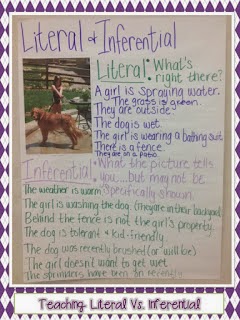 Literal & Inferential
Literal: What's
right there?
A girl is spraying water.
The grass is green.
They are outside.
The dog is wet.
The girl is wearing a bathing suit.
There is a fence.
They are on a patio.
Inferential: What the picture tells
you...but may not be
specifically shown.
The weather is warm.
The girl is washing the dog. (They are in their backyard)
Behind the fence is not the girl's property.
The dog is tolerant & kid-friendly.
The dog was recently brushed (or will be).
The girl doesn't want to get wet.
The sprinklers have been on recently.
Teaching Literal Vs. Inferential